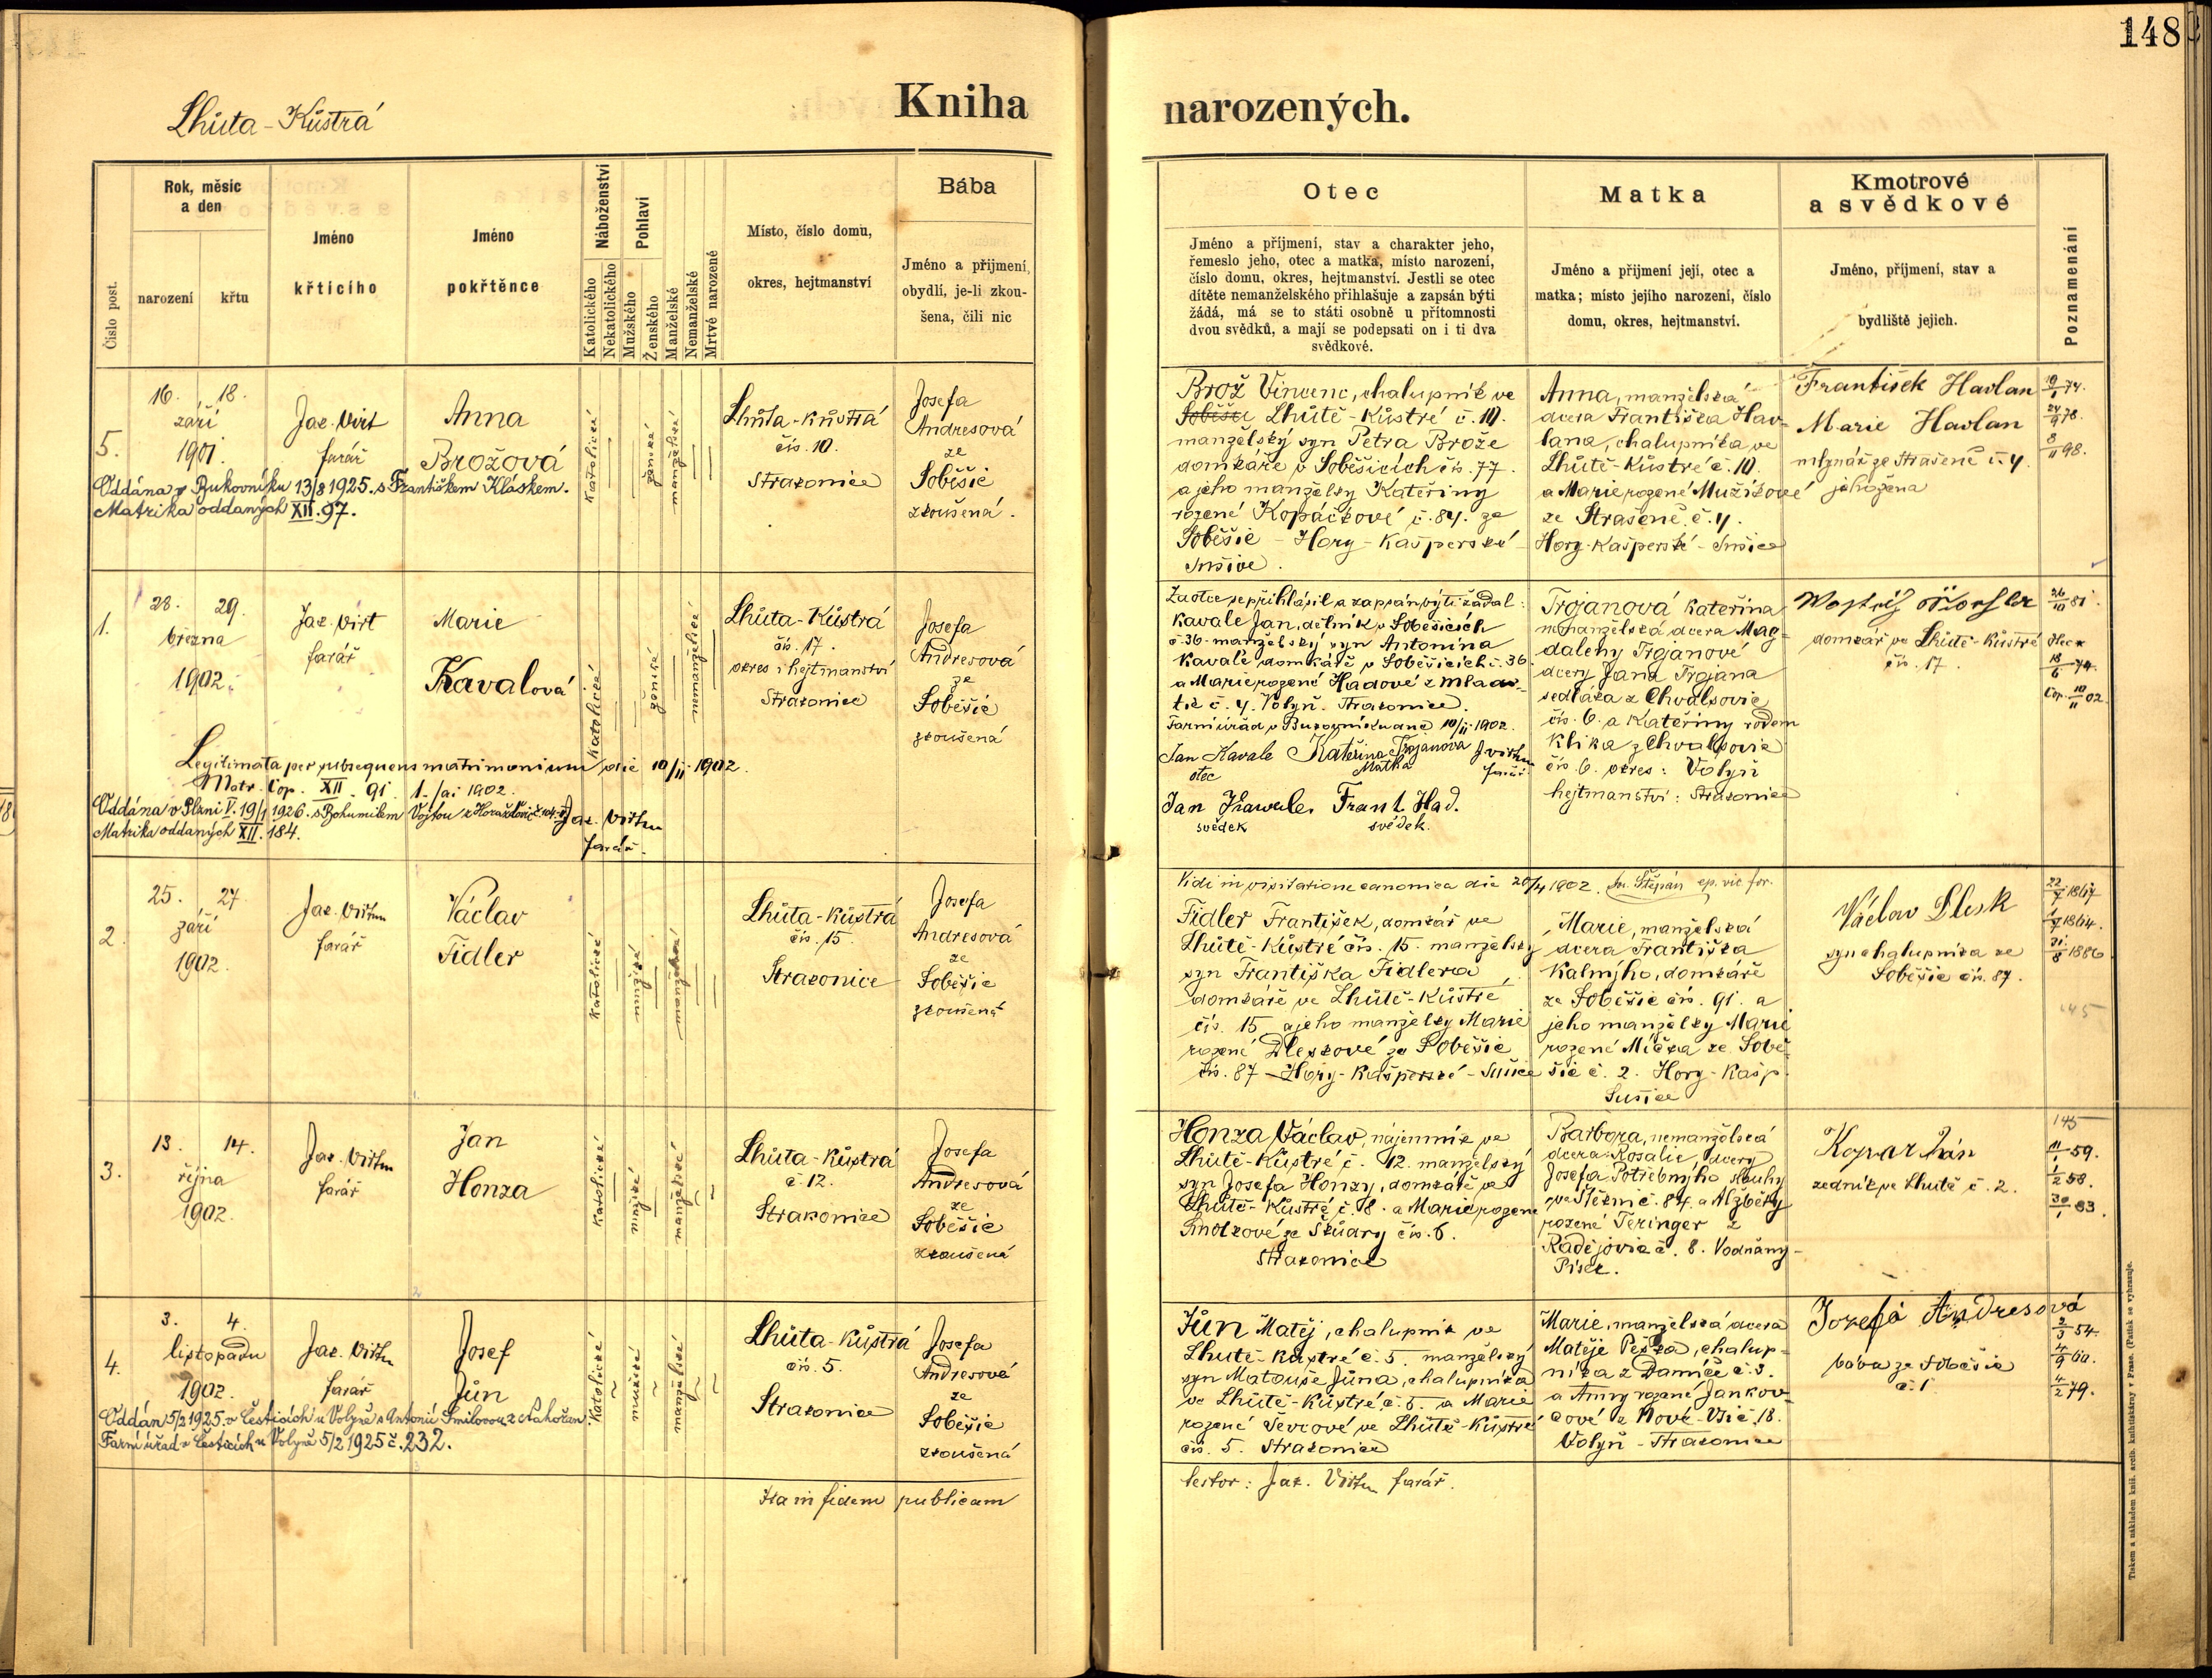 148
Lhůta-Kůstrá
Kniha narozených.
Číslo post.
Rok, měsíc
a den
narození
křtu
Jméno
křtícího
Jméno
pokřtěnce
Náboženství
Katolického
Nekatolického
Pohlaví
Mužského
Ženského
Manželské
Nemanželské
Mrtvě narozené
Místo, číslo domu,
okres, hejtmanství
Bába
Jméno a příjmení,
obydlí, je-li zkou-
šena, čili nic
Otec
Jméno a příjmení, stav a charakter jeho,
řemeslo jeho, otec a matka, místo narození,
číslo domu, okres, hejtmanství. Jestli se otec
dítěte nemanželského přihlašuje a zapsán býti
žádá, má se to státi osobně u přítomnosti
dvou svědků, a mají se podepsati on i ti dva
svědkové.
Matka
Jméno a příjmení její, otec a
matka; místo jejího narození, číslo
domu, okres, hejtmanství.
Kmotrové
a svědkové
Jméno, příjmení, stav a
bydliště jejich.
Poznamenání
5.
16. 18.
září
1901
Jak. Virt
farář
Anna
Brožová
katolické
ženské
manželské
Lhůta-Kůstrá
čís. 10.
Strakonice
Josefa
Andresová
ze
Soběšic
zkoušená.
Oddána v Bukovníku 13/8 1925. s Františkem Kláskem.
Matrika oddaných XII. 97.
Brož Vincenc, chalupník ve
Lhůtě-Kůstré č. 10.
manželský syn Petra Brože
domkáře v Soběšicích čís. 77.
a jeho manželky Kateřiny
rozené Kopáčkové č. 84. ze
Soběšic - Hory-Kašperské -
Sušice.
Anna, manželská
dcera Františka Hav-
lana, chalupníka ve
Lhůtě-Kůstré č. 10.
a Marie rozené Mužíkové
ze Strašené č. 4.
Hory-Kašperské - Sušice
František Havlan
Marie Havlan
mlynář ze Strašené č. 4
jeho žena
10/1 74.
24/9 78.
8/11 98.
1.
28. 29.
března
1902.
Jak. Virt
farář
Marie
Kavalová
katolické
ženské
nemanželské
Lhůta-Kůstrá
čís. 17.
okres i hejtmanství
Strakonice
Josefa
Andresová
ze
Soběšic
zkoušená
Legitimata per subsequens matrimonium die 10/11 1902.
Matr. Cop. XII. 91. 1. /ai 1902.
Jak. Virtm
farář.
Oddána v Plzni V. 19/1 1926. s Bohumilem Vojtou z Horažďovic
Matrika oddaných XII. 184.
Za otce se přihlásil a zapsán býti žádal:
Kavale Jan, dělník v Soběšicích
č. 36. manželský syn Antonína
Kavale domkáře v Soběšicích č. 36
a Marie rozené Hádové z Mlado-
tic č. 4. Volyň. Strakonice.
Farní úřad v Bukovníku dne 10/11 1902.
Jan Kavale Kateřina Trojanova J. Virtm
otec Matka farář
Jan Kawale, Frant. Had.
svědek svědek.
Trojanová Kateřina
nemanželská dcera Mag-
daleny Trojanové
dcery Jana Trojana
sedláka z Chvalšovic
čís. 6. a Kateřiny rodem
Klika z Chvalšovic
čís. 6. okres: Volyň
hejtmanství: Strakonice
domkář ve Lhůtě-Kůstré
čís. 17.
26/10 81.
18/6 74.
Cop. 10/11 02.
2.
25. 27.
září
1902.
Jak. Virtm
farář
Václav
Fidler
katolické
mužské
manželské
Lhůta-Kůstrá
čís. 15.
Strakonice
Josefa
Andresová
ze
Soběšic
zkoušená
Vidi in visitatione canonica die 20/4 1902. Jn. Štěpán ep. vic. for.
Fidler František, domkář ve
Lhůtě-Kůstré čís. 15. manželský
syn Františka Fidlera
domkáře ve Lhůtě-Kůstré
čís. 15 a jeho manželky Marie
rozené Dleskové ze Soběšic
čís. 87 - Hory-Kašperské - Sušice
Marie, manželská
dcera Františka
Kalmýho, domkáře
ze Soběšic čís. 91. a
jeho manželky Marie
rozené Míčka ze Sobě-
šic č. 2. Hory-Kašp.
Sušice
Václav Dlesk
syn chalupníka ze
Soběšic čís. 87.
145
3.
13. 14.
října
1902.
Jak. Virtm
farář
Jan
Honza
katolické
mužské
manželské
Lhůta-Kůstrá
č. 12.
Strakonice
Josefa
Andresová
ze
Soběšic
zkoušená
Honza Václav, nájemník ve
Lhůtě-Kůstré č. 12. manželský
syn Josefa Honzy, domkáře ve
Lhůtě-Kůstré č. 18. a Marie rozené
ze Škůdry čís. 6.
Strakonice
Barbora, nemanželská
dcera Rosalie, dcery
Josefa Potřebnýho sluhy
ve Štěkni č. 84. a Alžběty
rozené Teringer z
Radějovic č. 8. Vodňany -
Písek.
zedník ve Lhůtě č. 2.
145
11/1 59.
1/2 58.
30/1 83.
4.
3. 4.
listopadu
1902.
Jak. Virtm
farář
Josef
Jůn
katolické
mužské
manželské
Lhůta-Kůstrá
čís. 5.
Strakonice
Josefa
Andresová
ze
Soběšic
zkoušená
Oddán 5/2 1925. v Česticích u Volyně s Antonií Smilovou z Nahořan.
Farní úřad v Česticích u Volyně 5/2 1925 č. 232.
Jůn Matěj, chalupník ve
Lhůtě-Kůstré č. 5. manželský
syn Matouše Jůna, chalupníka
ve Lhůtě-Kůstré, č. 5. a Marie
rozené Ševcové ve Lhůtě-Kůstré
čís. 5. Strakonice
Marie, manželská dcera
Matěje Peška, chalup-
níka z Damíče č. 3.
a Anny rozené Jankov-
cové z Nové-Vsi č. 18.
Volyň - Strakonice
Josefa Andresová
bába ze Soběšic
č. 1
2/3 54.
4/9 60.
4/2 79.
Ita in fidem publicam
testor: Jak. Virtm farář.
Tiskem a nákladem kníž. arcib. knihtiskárny v Praze. (Patisk se vyhrazuje.